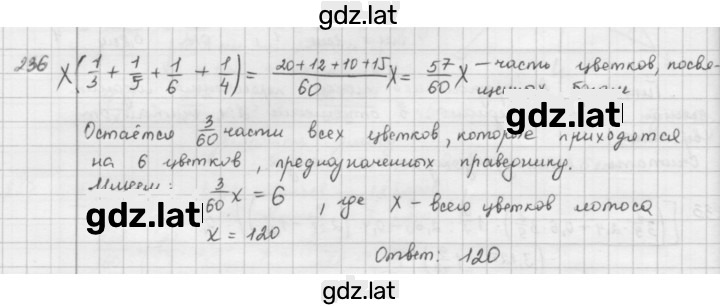 gdz.lat
236 x(1/3 + 1/5 + 1/6 + 1/4) = (20+12+10+15)/60 x = 57/60 x — часть цветков, посвя-
gdz.lat
Остаётся 3/60 части всех цветков, которые приходятся
на 6 цветков, предназначенных праведнику.
Имеем: 3/60 x = 6, где x – всего цветков лотоса
gdz.lat
x = 120
Ответ: 120
gdz.lat